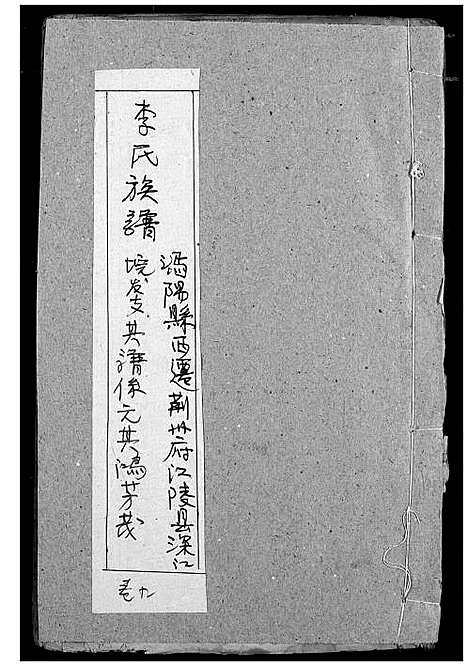 李氏族譜
沔陽縣西遷荊州府江陵县深江
垸发支共譜係元共鴻芳茂
卷九